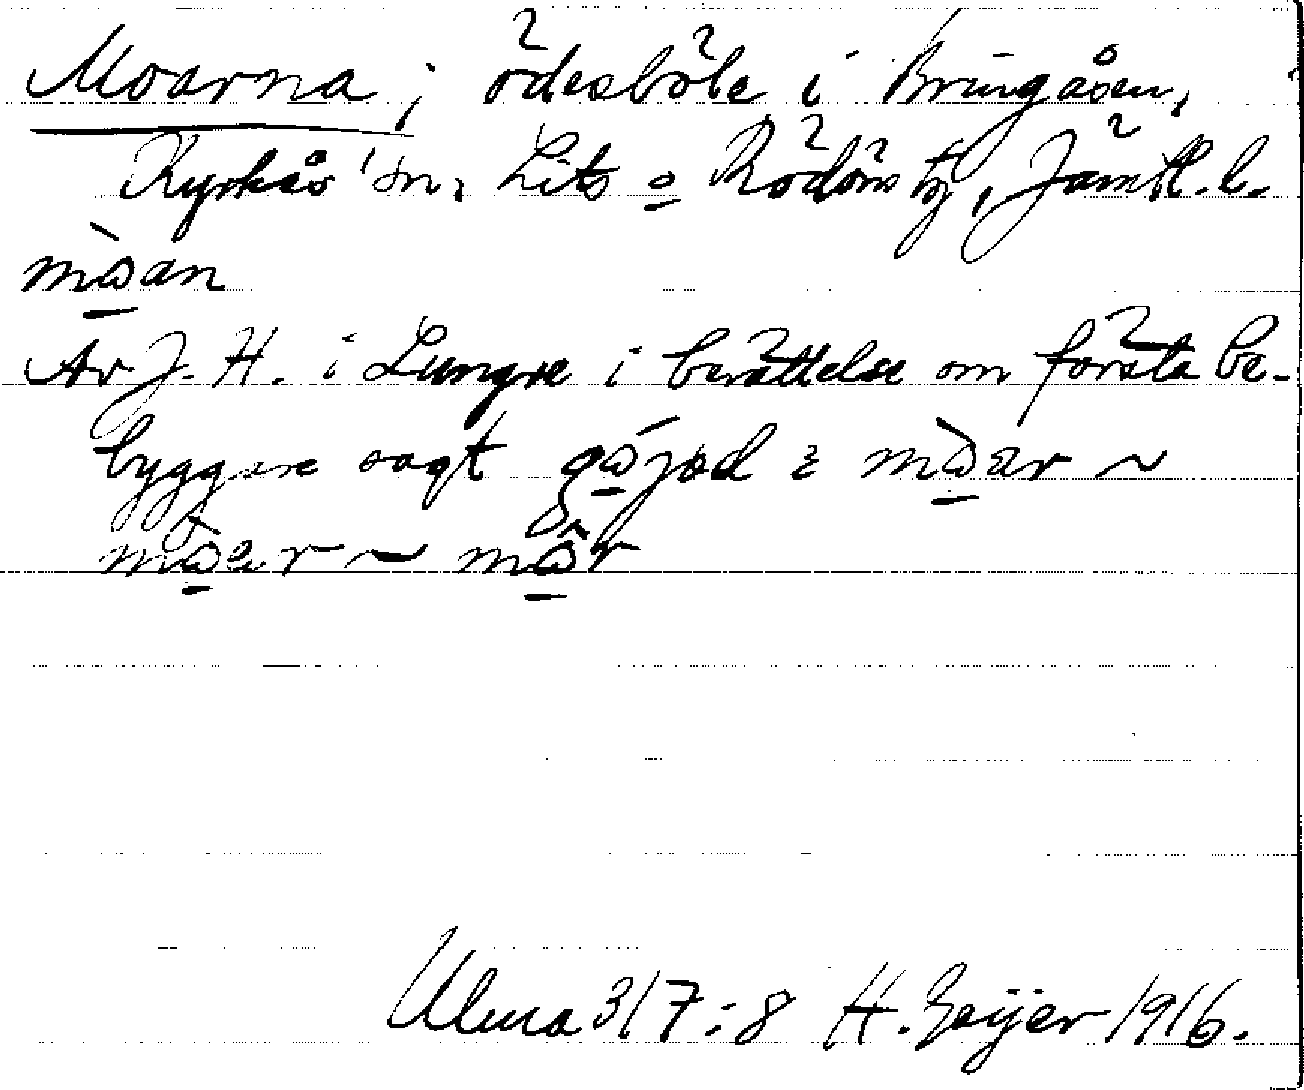 Moarna; ödesböle i Bringåsen,
Kyrkås sn, Lits o Rödöns tg, Jämtl. l.
mò̱an
Av J. H. i Lungre i berättelse om första be-
byggare sagt i mò̱ar ~
mò̱er ~ mô̱r
Ulma 317:8 H. Geijer 1916.